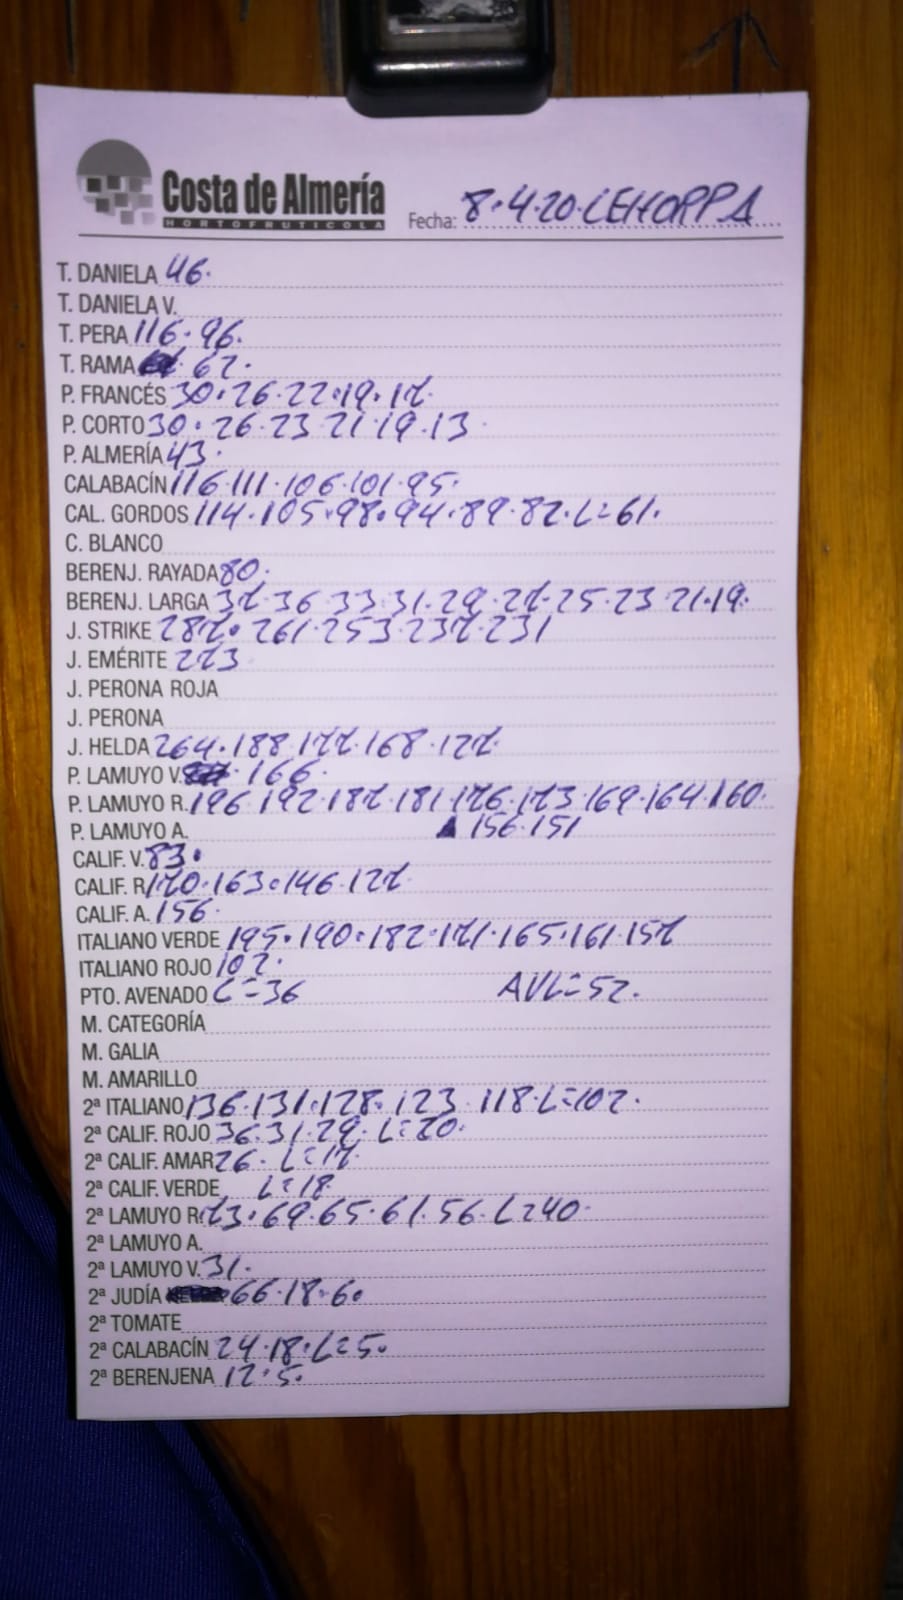 Costa de Almería
HORTOFRUTICOLA
Fecha: 8.4.20. LEHORPA
T. DANIELA 46.
T. DANIELA V.
T. PERA 116. 96.
T. RAMA 62.
P. FRANCÉS 30. 26. 22. 19. 17.
P. CORTO 30. 26. 23 21. 19. 13
P. ALMERÍA 43.
CALABACÍN 116. 111. 106. 101. 95.
CAL. GORDOS 114. 105. 98. 94. 89. 82. L=61.
C. BLANCO
BERENJ. RAYADA 80.
BERENJ. LARGA 37. 36. 33. 31. 29. 27. 25. 23 21. 19.
J. STRIKE 287. 261. 253. 237. 231
J. EMÉRITE 273
J. PERONA ROJA
J. PERONA
J. HELDA 264. 188. 177. 168. 127.
P. LAMUYO V. 166.
P. LAMUYO R. 196 192. 187. 181 176. 173 169. 164. 160.
P. LAMUYO A. 156. 151
CALIF. V. 83.
CALIF. R 170. 163. 146. 127.
CALIF. A. 156.
ITALIANO VERDE 195. 190. 182. 171. 165. 161. 157
ITALIANO ROJO 102.
PTO. AVENADO L=36 AVL=52.
M. CATEGORÍA
M. GALIA
M. AMARILLO
2ª ITALIANO 136. 131. 128. 123 118. L=102.
2ª CALIF. ROJO 36. 31. 29. L=20.
2ª CALIF. AMAR 26. L=17.
2ª CALIF. VERDE L=18
2ª LAMUYO R. 73. 69. 65. 61. 56. L=40.
2ª LAMUYO A.
2ª LAMUYO V. 31.
2ª JUDÍA 66. 18. 6.
2ª TOMATE
2ª CALABACÍN 24. 18. L=5.
2ª BERENJENA 12. 5.